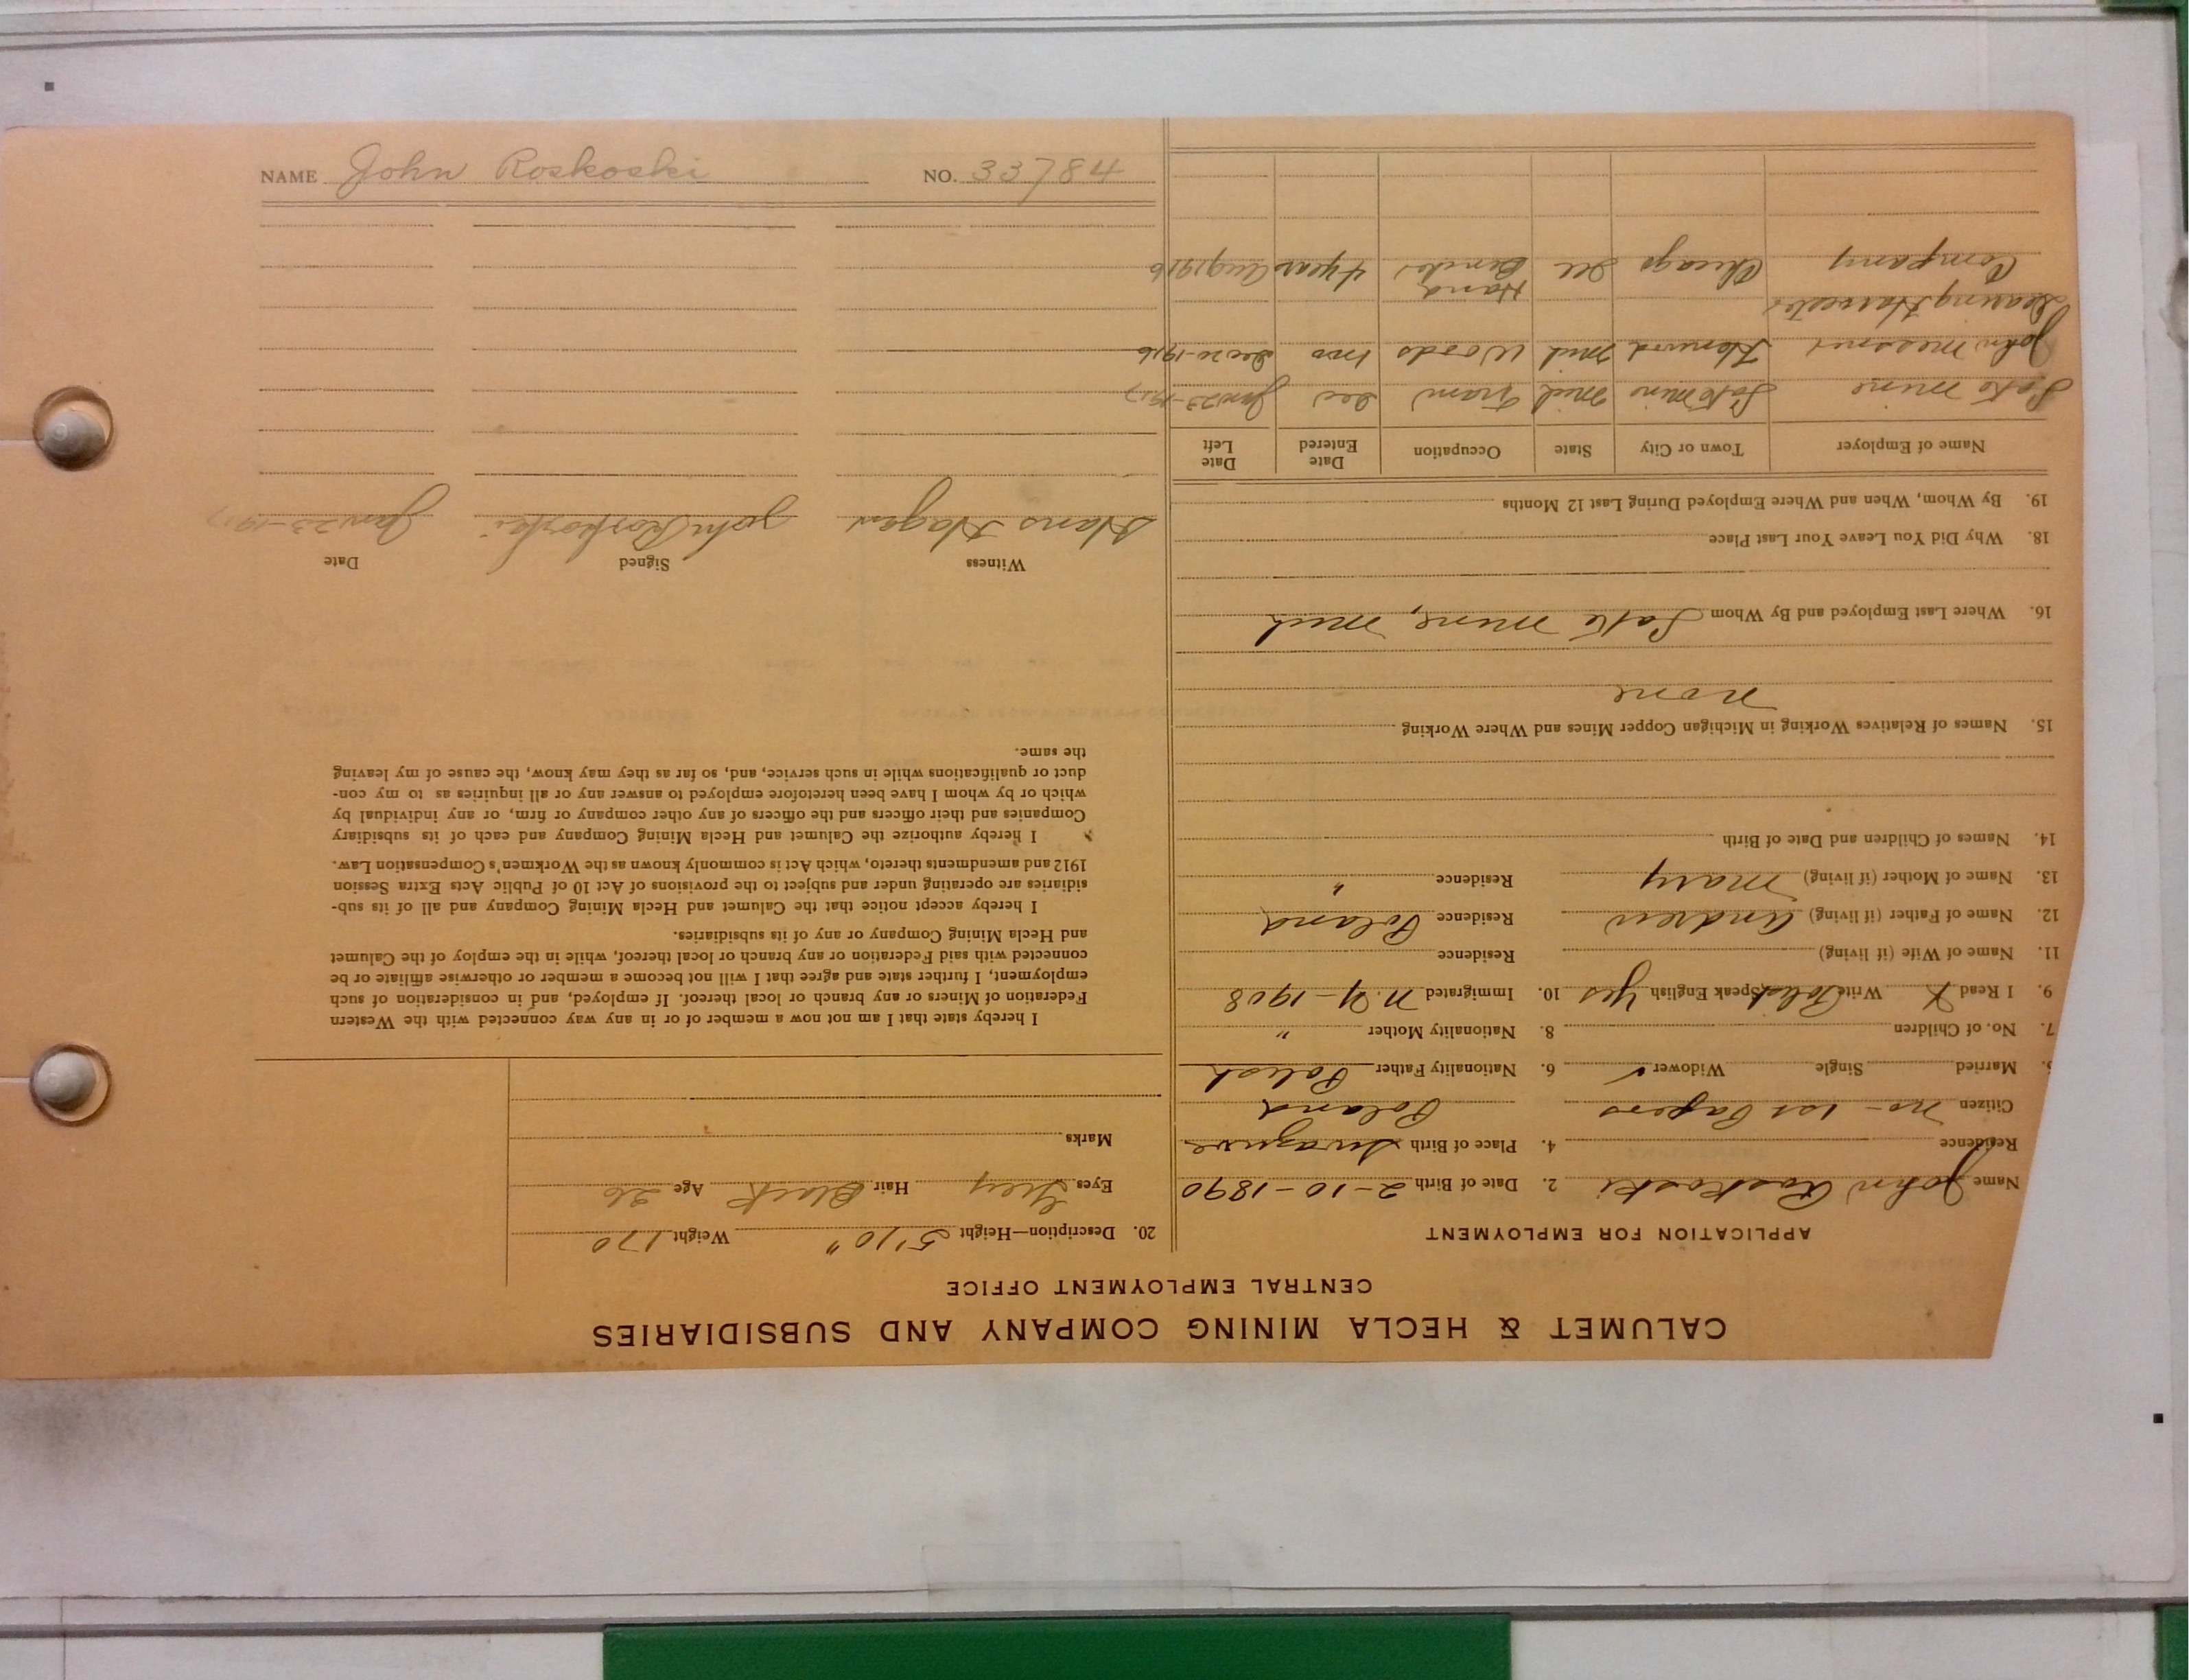 CALUMET & HECLA MINING COMPANY AND SUBSIDIARIES
CENTRAL EMPLOYMENT OFFICE
APPLICATION FOR EMPLOYMENT
Name John Roskoski 2. Date of Birth 2-10-1890
Residence 4. Place of Birth
Citizen no - 1st Papers Poland
Married Single Widower ✓ 6. Nationality Father Polish
7. No. of Children 8. Nationality Mother "
9. I Read X Write Polish Speak English Yes 10. Immigrated N.Y - 1908
11. Name of Wife (if living) Residence
12. Name of Father (if living) Andrew Residence Poland
13. Name of Mother (if living) Mary Residence "
14. Names of Children and Date of Birth
15. Names of Relatives Working in Michigan Copper Mines and Where Working
none
16. Where Last Employed and By Whom Lake Mine, Mich
18. Why Did You Leave Your Last Place
19. By Whom, When and Where Employed During Last 12 Months
Name of Employer Town or City State Occupation Date Entered Date Left
Lake Mine Lake Mine Mich Tram Dec Jan 23-1917
John Messner Mich Woods Dec 20-1916
Deering Harvester
Company Chicago Ill Hand Bender 4 years Aug 1916
20. Description—Height 5'10" Weight 170
Eyes Grey Hair Black Age 26
Marks
I hereby state that I am not now a member of or in any way connected with the Western
Federation of Miners or any branch or local thereof. If employed, and in consideration of such
employment, I further state and agree that I will not become a member or otherwise affiliate or be
connected with said Federation or any branch or local thereof, while in the employ of the Calumet
and Hecla Mining Company or any of its subsidiaries.
I hereby accept notice that the Calumet and Hecla Mining Company and all of its sub-
sidiaries are operating under and subject to the provisions of Act 10 of Public Acts Extra Session
1912 and amendments thereto, which Act is commonly known as the Workmen's Compensation Law.
I hereby authorize the Calumet and Hecla Mining Company and each of its subsidiary
Companies and their officers and the officers of any other company or firm, or any individual by
which or by whom I have been heretofore employed to answer any or all inquiries as to my con-
duct or qualifications while in such service, and, so far as they may know, the cause of my leaving
the same.
Witness Signed Date
Hans Hagen John Roskoski Jan 23-1917
NAME John Roskoski NO. 33784